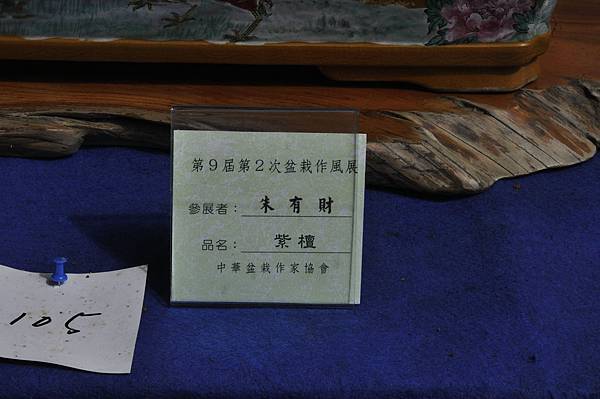 第9屆第2次盆栽作風展
參展者：朱有財
品名：紫檀
中華盆栽作家協會
105